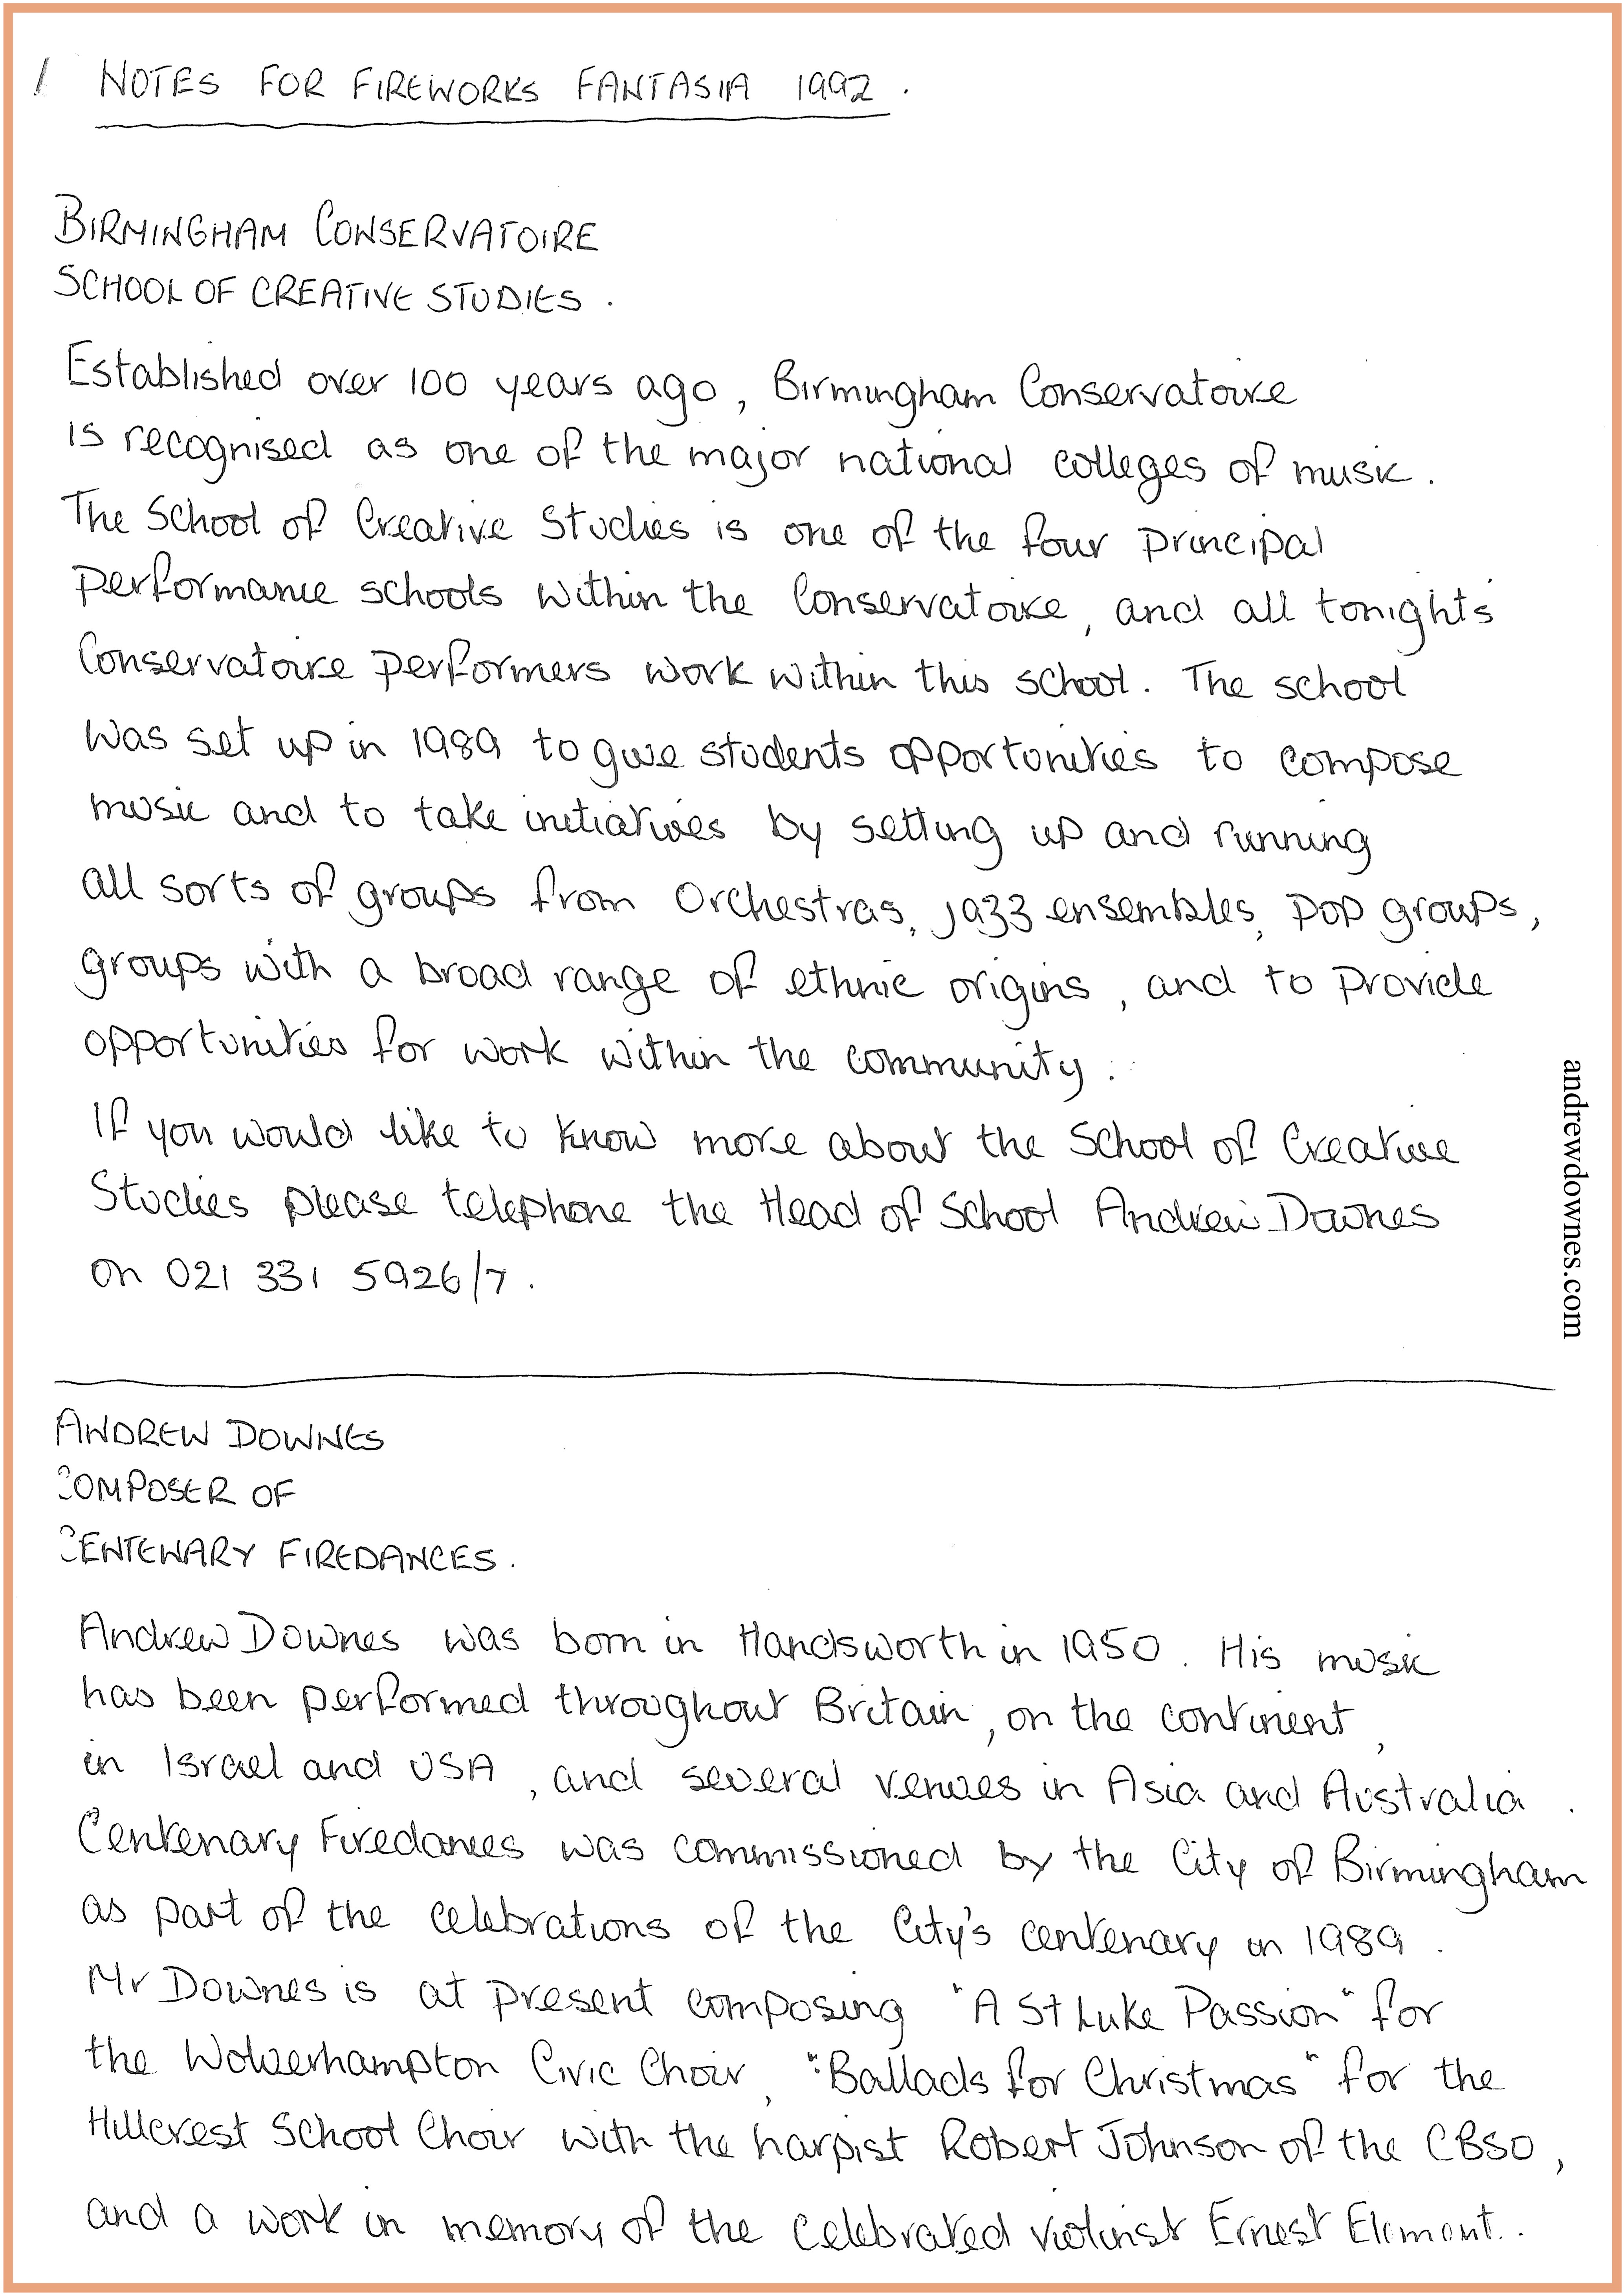 1 NOTES FOR FIREWORKS FANTASIA 1992.
BIRMINGHAM CONSERVATOIRE
SCHOOL OF CREATIVE STUDIES.
Established over 100 years ago, Birmingham Conservatoire
is recognised as one of the major national colleges of music.
The School of Creative Studies is one of the four principal
performance schools within the Conservatoire, and all tonights'
Conservatoire performers work within this school. The school
was set up in 1989 to give students opportunities to compose
music and to take initiatives by setting up and running
all sorts of groups from Orchestras, jazz ensembles, pop groups,
groups with a broad range of ethnic origins, and to provide
opportunities for work within the community.
If you would like to know more about the School of Creative
Studies please telephone the Head of School Andrew Downes
on 021 331 5926/7.
ANDREW DOWNES
COMPOSER OF
CENTENARY FIREDANCES.
Andrew Downes was born in Handsworth in 1950. His music
has been performed throughout Britain, on the continent,
in Israel and USA, and several venues in Asia and Australia.
Centenary Firedances was commissioned by the City of Birmingham
as part of the celebrations of the City's centenary in 1989.
Mr Downes is at present composing "A St Luke Passion" for
the Wolverhampton Civic Choir, "Ballads for Christmas" for the
Hillcrest School Choir with the harpist Robert Johnson of the CBSO,
and a work in memory of the celebrated violinist Ernest Element..
andrewdownes.com